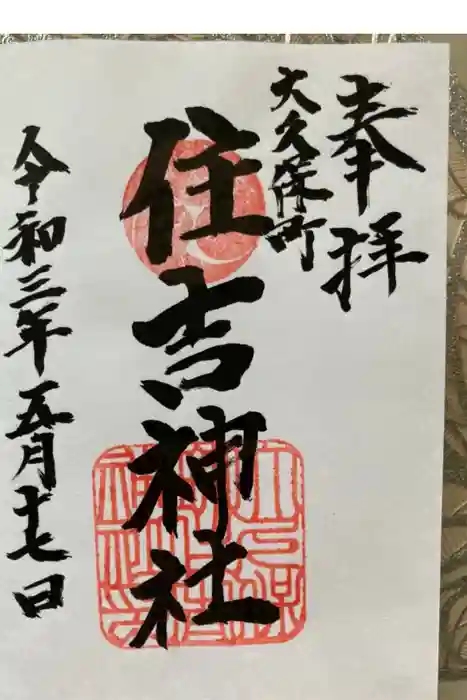 奉拝
大久保町
住吉神社
令和三年五月十七日